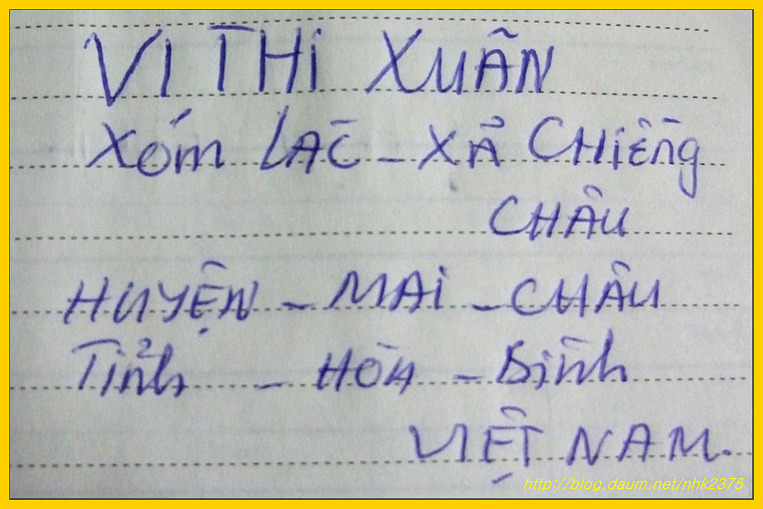 VI THI XUÂN
Xóm LAC - XÃ CHIỀNG
CHÂU
HUYỆN - MAI - CHÂU
Tỉnh - HÒA - Bình
VIỆT NAM.
http://blog.daum.net/nhk2375